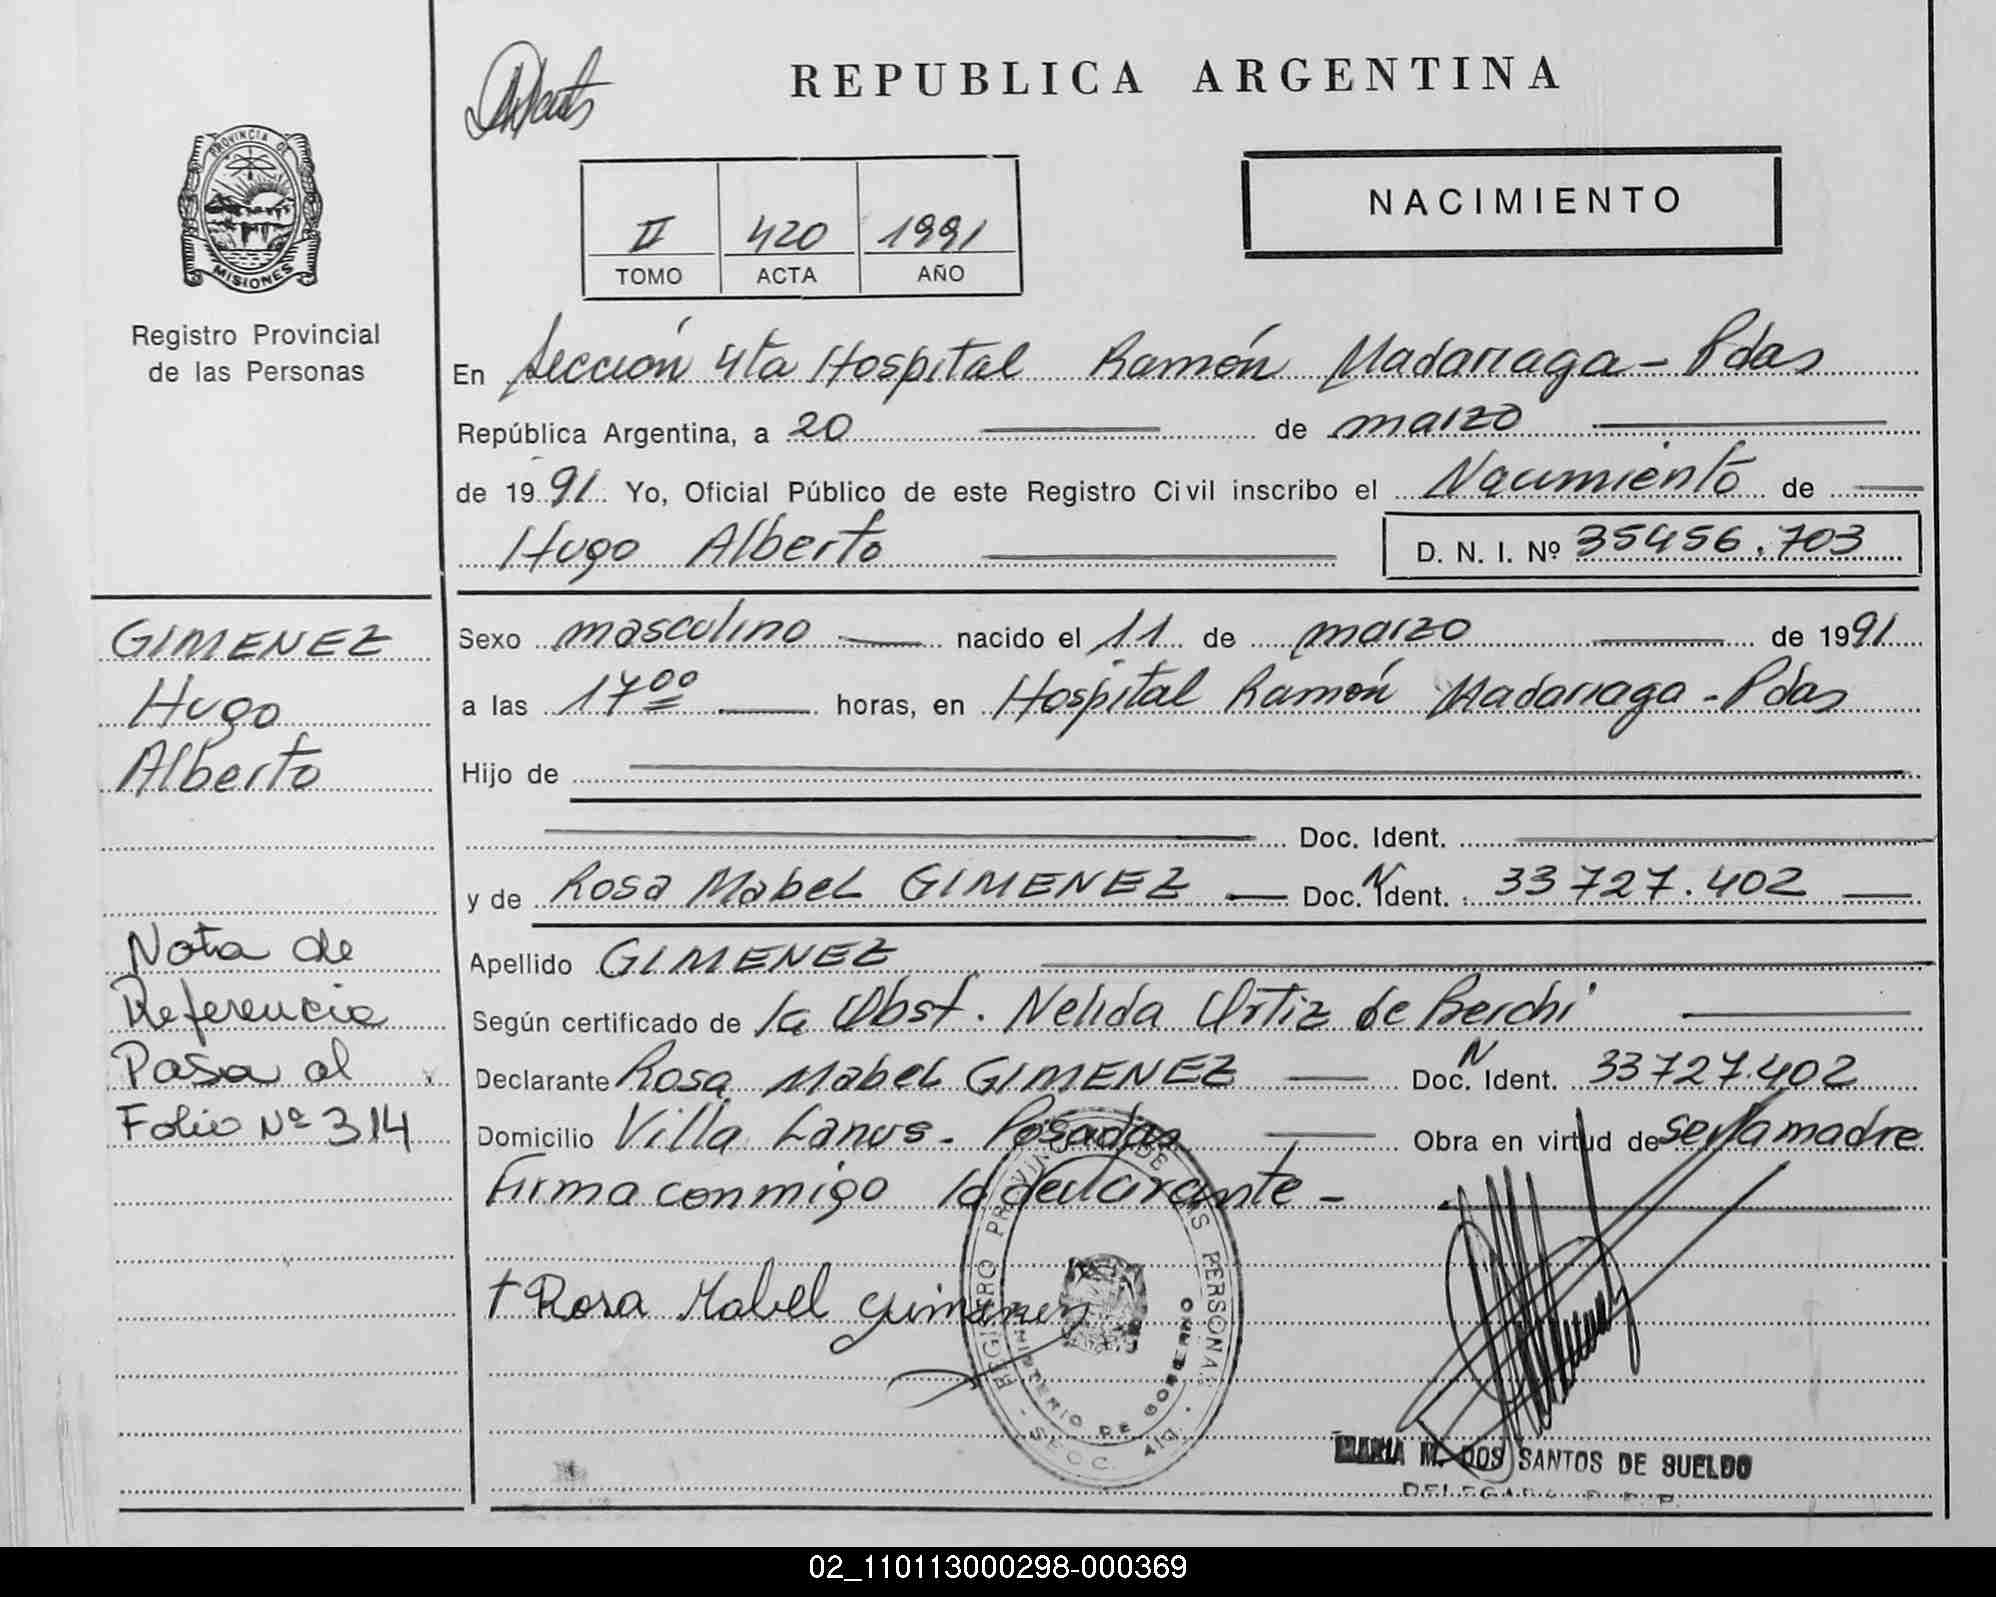 REPUBLICA ARGENTINA
NACIMIENTO
II 420 1991
TOMO ACTA AÑO
PROVINCIA DE
MISIONES
Registro Provincial
de las Personas
En Sección 4ta Hospital Ramón Madariaga - Pdas
República Argentina, a 20 de marzo
de 1991 Yo, Oficial Público de este Registro Civil inscribo el Nacimiento de
Hugo Alberto D. N. I. Nº 35456.703
GIMENEZ
Hugo
Alberto
Nota de
Referencia
Pasa al
Folio Nº 314
Sexo masculino nacido el 11 de marzo de 1991
a las 17 00 horas, en Hospital Ramón Madariaga - Pdas
Hijo de
Doc. Ident.
y de Rosa Mabel GIMENEZ Doc. N Ident. 33727.402
Apellido GIMENEZ
Según certificado de la Obst. Nelida Ortiz de Berchi
Declarante Rosa Mabel GIMENEZ Doc. N Ident. 33727.402
Domicilio Villa Lanus - Posadas Obra en virtud de ser la madre
Firma conmigo la declarante -
+ Rosa Mabel Gimenez
REGISTRO PROVINCIAL DE LAS PERSONAS
MINISTERIO DE GOBIERNO
- SECC. 4ta. -
MARIA M. DOS SANTOS DE SUELDO
02_110113000298-000369